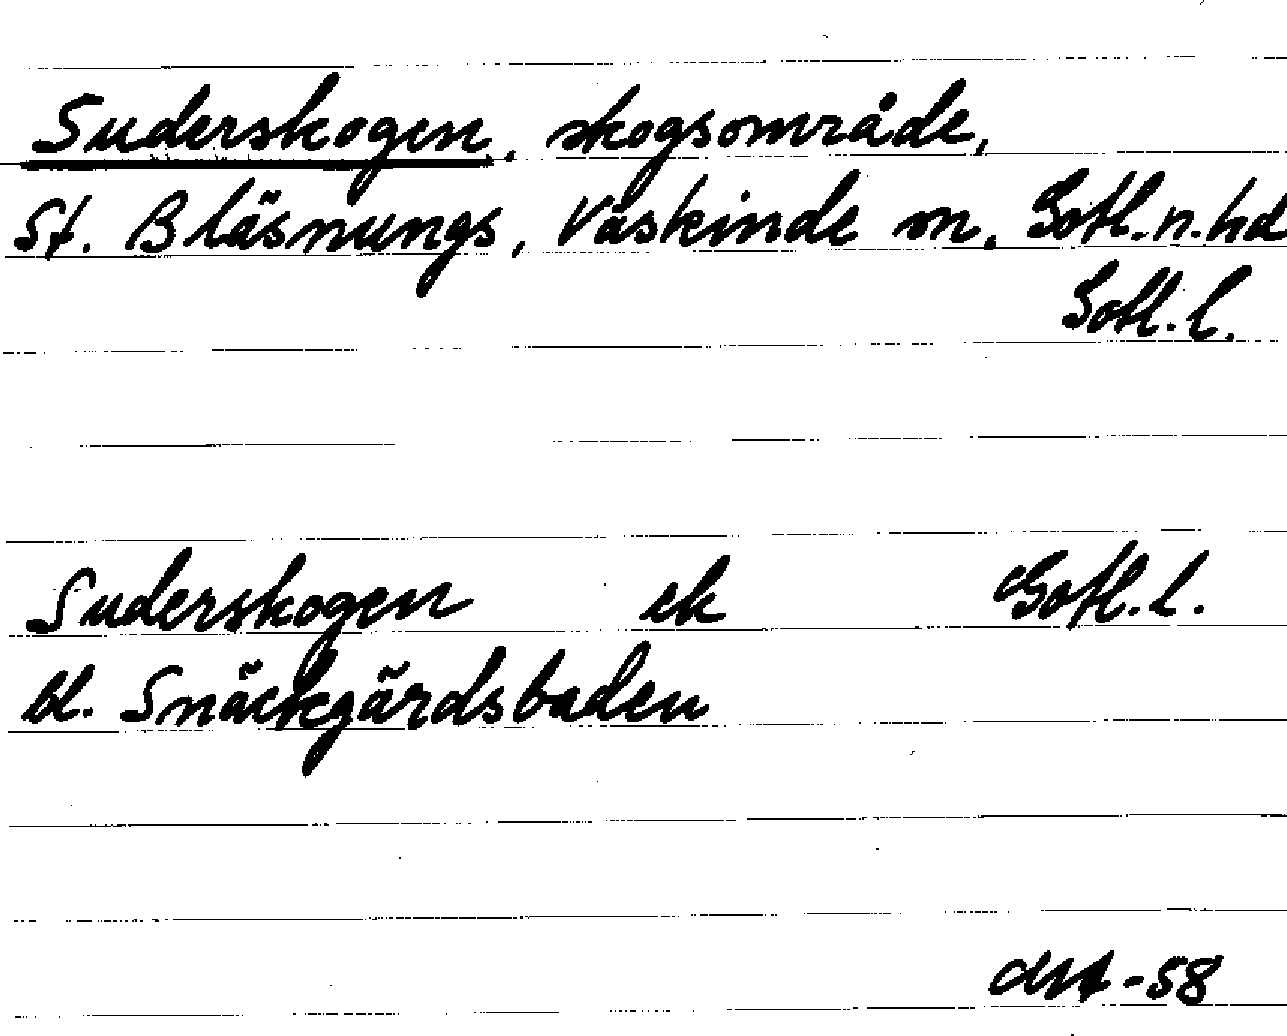 Suderskogen, skogsområde,
St. Bläsnungs, Väskinde sn, Gotl. n. hd
Gotl. l.
Suderskogen ek Gotl. l.
bl. Snäckgärdsbaden
-58